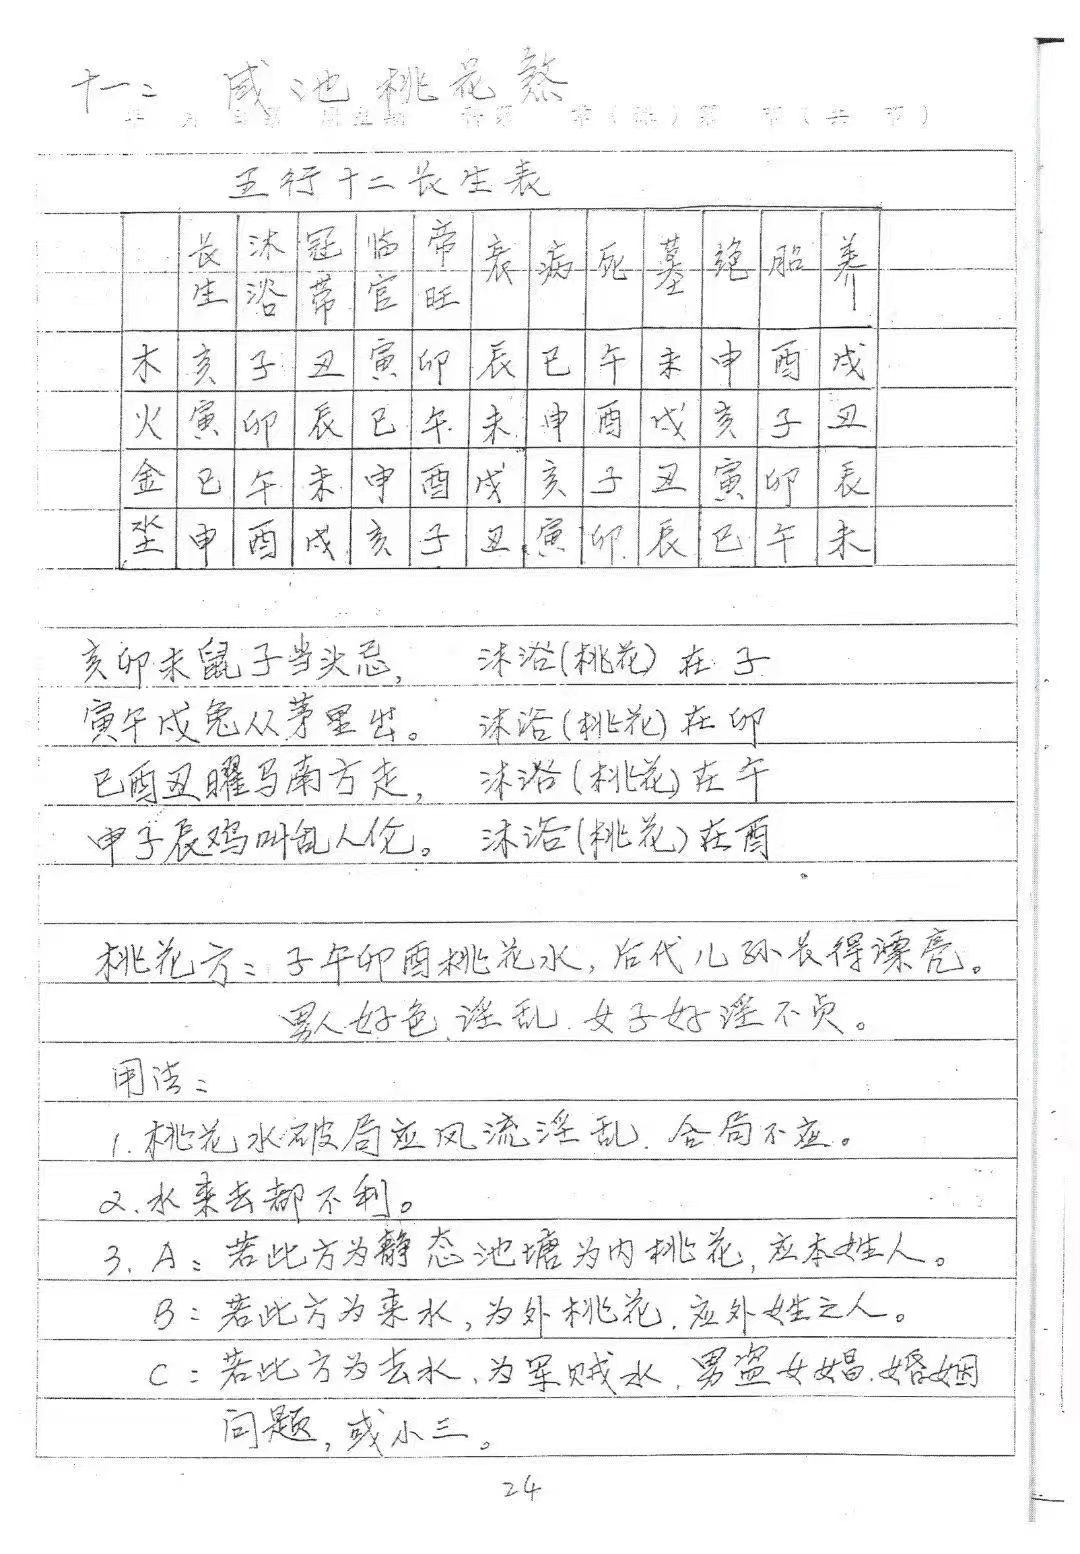 十一: 咸池桃花煞
五行十二长生表
长生 沐浴 冠带 临官 帝旺 衰 病 死 墓 绝 胎 养
木 亥 子 丑 寅 卯 辰 巳 午 未 申 酉 戌
火 寅 卯 辰 巳 午 未 申 酉 戌 亥 子 丑
金 巳 午 未 申 酉 戌 亥 子 丑 寅 卯 辰
水土 申 酉 戌 亥 子 丑 寅 卯 辰 巳 午 未
亥卯未鼠子当头忌, 沐浴(桃花)在子
寅午戌兔从茅里出。 沐浴(桃花)在卯
巳酉丑曜马南方走, 沐浴(桃花)在午
申子辰鸡叫乱人伦。 沐浴(桃花)在酉
桃花方: 子午卯酉桃花水, 后代儿孙长得漂亮。
男人好色.淫乱.女子好淫不贞。
用法:
1.桃花水破局应风流淫乱.合局不应。
2.水来去都不利。
3.A: 若此方为静态池塘为内桃花, 应本姓人。
B: 若此方为来水, 为外桃花.应外姓之人。
C: 若此方为去水.为军贼水.男盗女娼.婚姻
问题, 或小三。
24